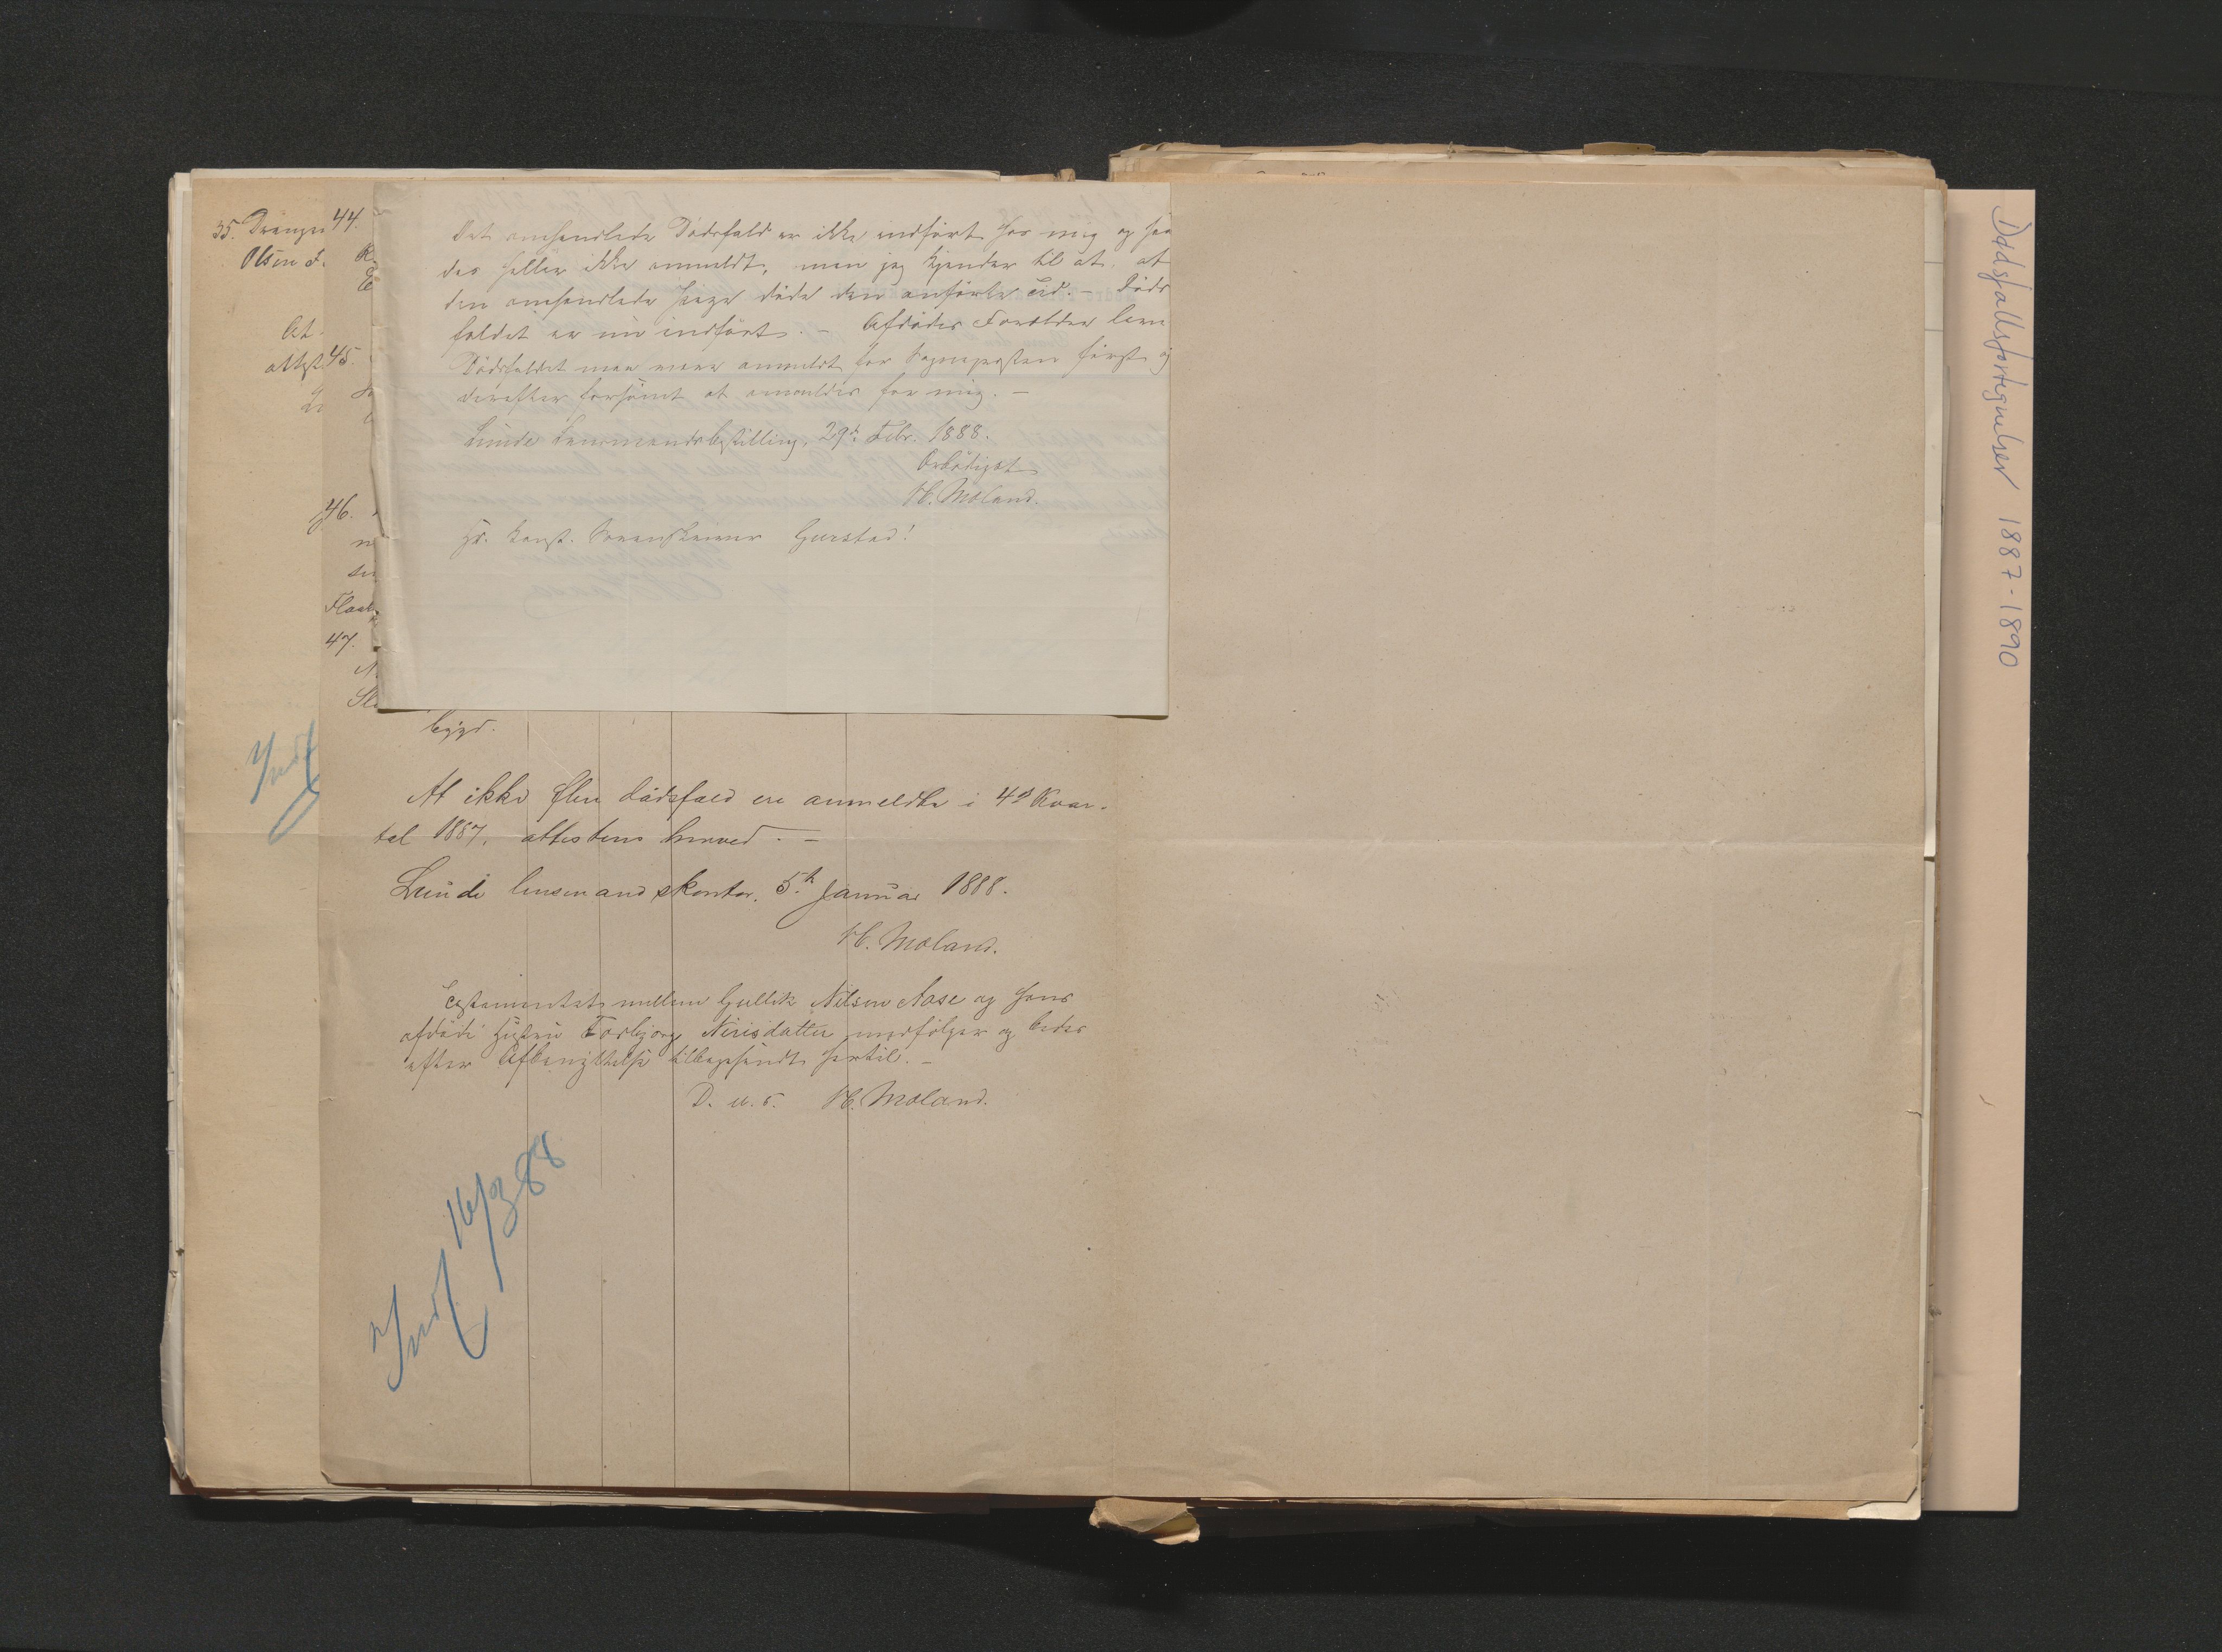 35. Drengen
Olsen F.
At
attest
Indf
44.
45.
46.
Flaat
47.
Det omhandlede Dødsfald er ikke indført hos mig og
des heller ikke anmeldt, men jeg kjender til at, at
den omhandlede Pige døde den anførte Tid. – Døds
faldet er nu indført. – Afdødes Forældre leve
Dødsfaldet maa være anmeldt for Sognepresten først og
derefter forsømt at anmeldes for mig. –
Lunde Lensmandsbestilling, 29de Febr. 1888.
Ærbødigst
H. Moland.
Hr. Const. Sorenskriver Gurstad!
bygd.
At ikke flere dødsfald ere anmeldte i 4de Kvar-
tal 1887, attesteres herved. –
Lunde lensmandskontor, 5te Januar 1888.
H. Moland.
Testamentet mellem Gullik Nilsen Aase og hans
afdøde Hustru Torbjørg Nirisdatter medfølger og bedes
efter Afbenyttelse tilbagesendt hertil. –
D. u. s. H. Moland.
Indf 16/3 88
Dødsfallsfortegnelser 1887-1890